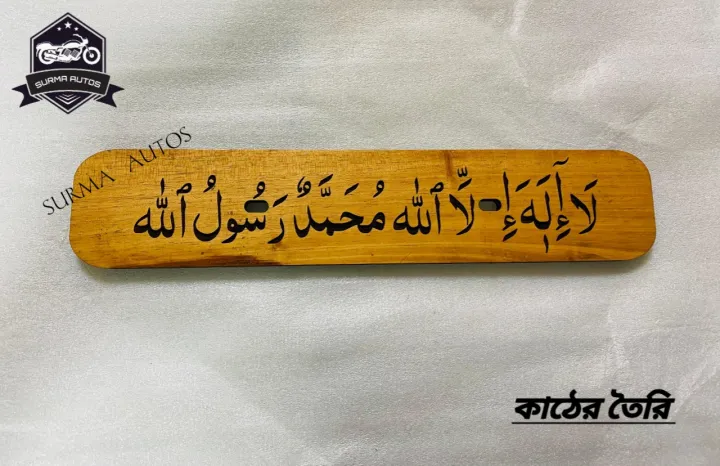 SURMA AUTOS
SURMA AUTOS
لَا إِلَٰهَ إِلَّا ٱللَّٰه مُحَمَّدٌ رَسُولُ ٱللَّٰه
কাঠের তৈরি